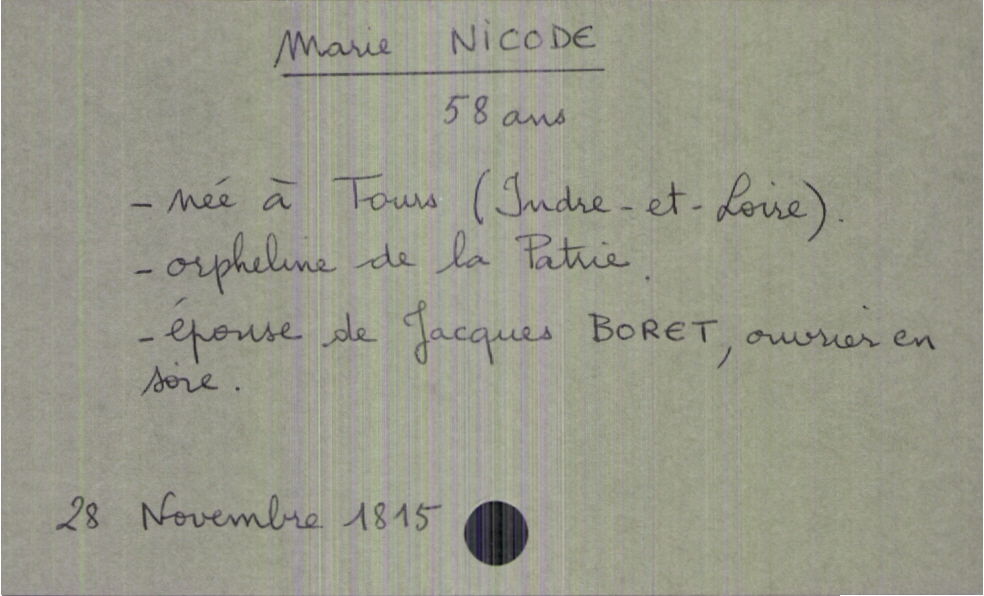 Marie NICODE
58 ans
- née à Tours (Indre-et-Loire).
- orpheline de la Patrie.
- épouse de Jacques BORET, ouvrier en
soie.
28 Novembre 1815